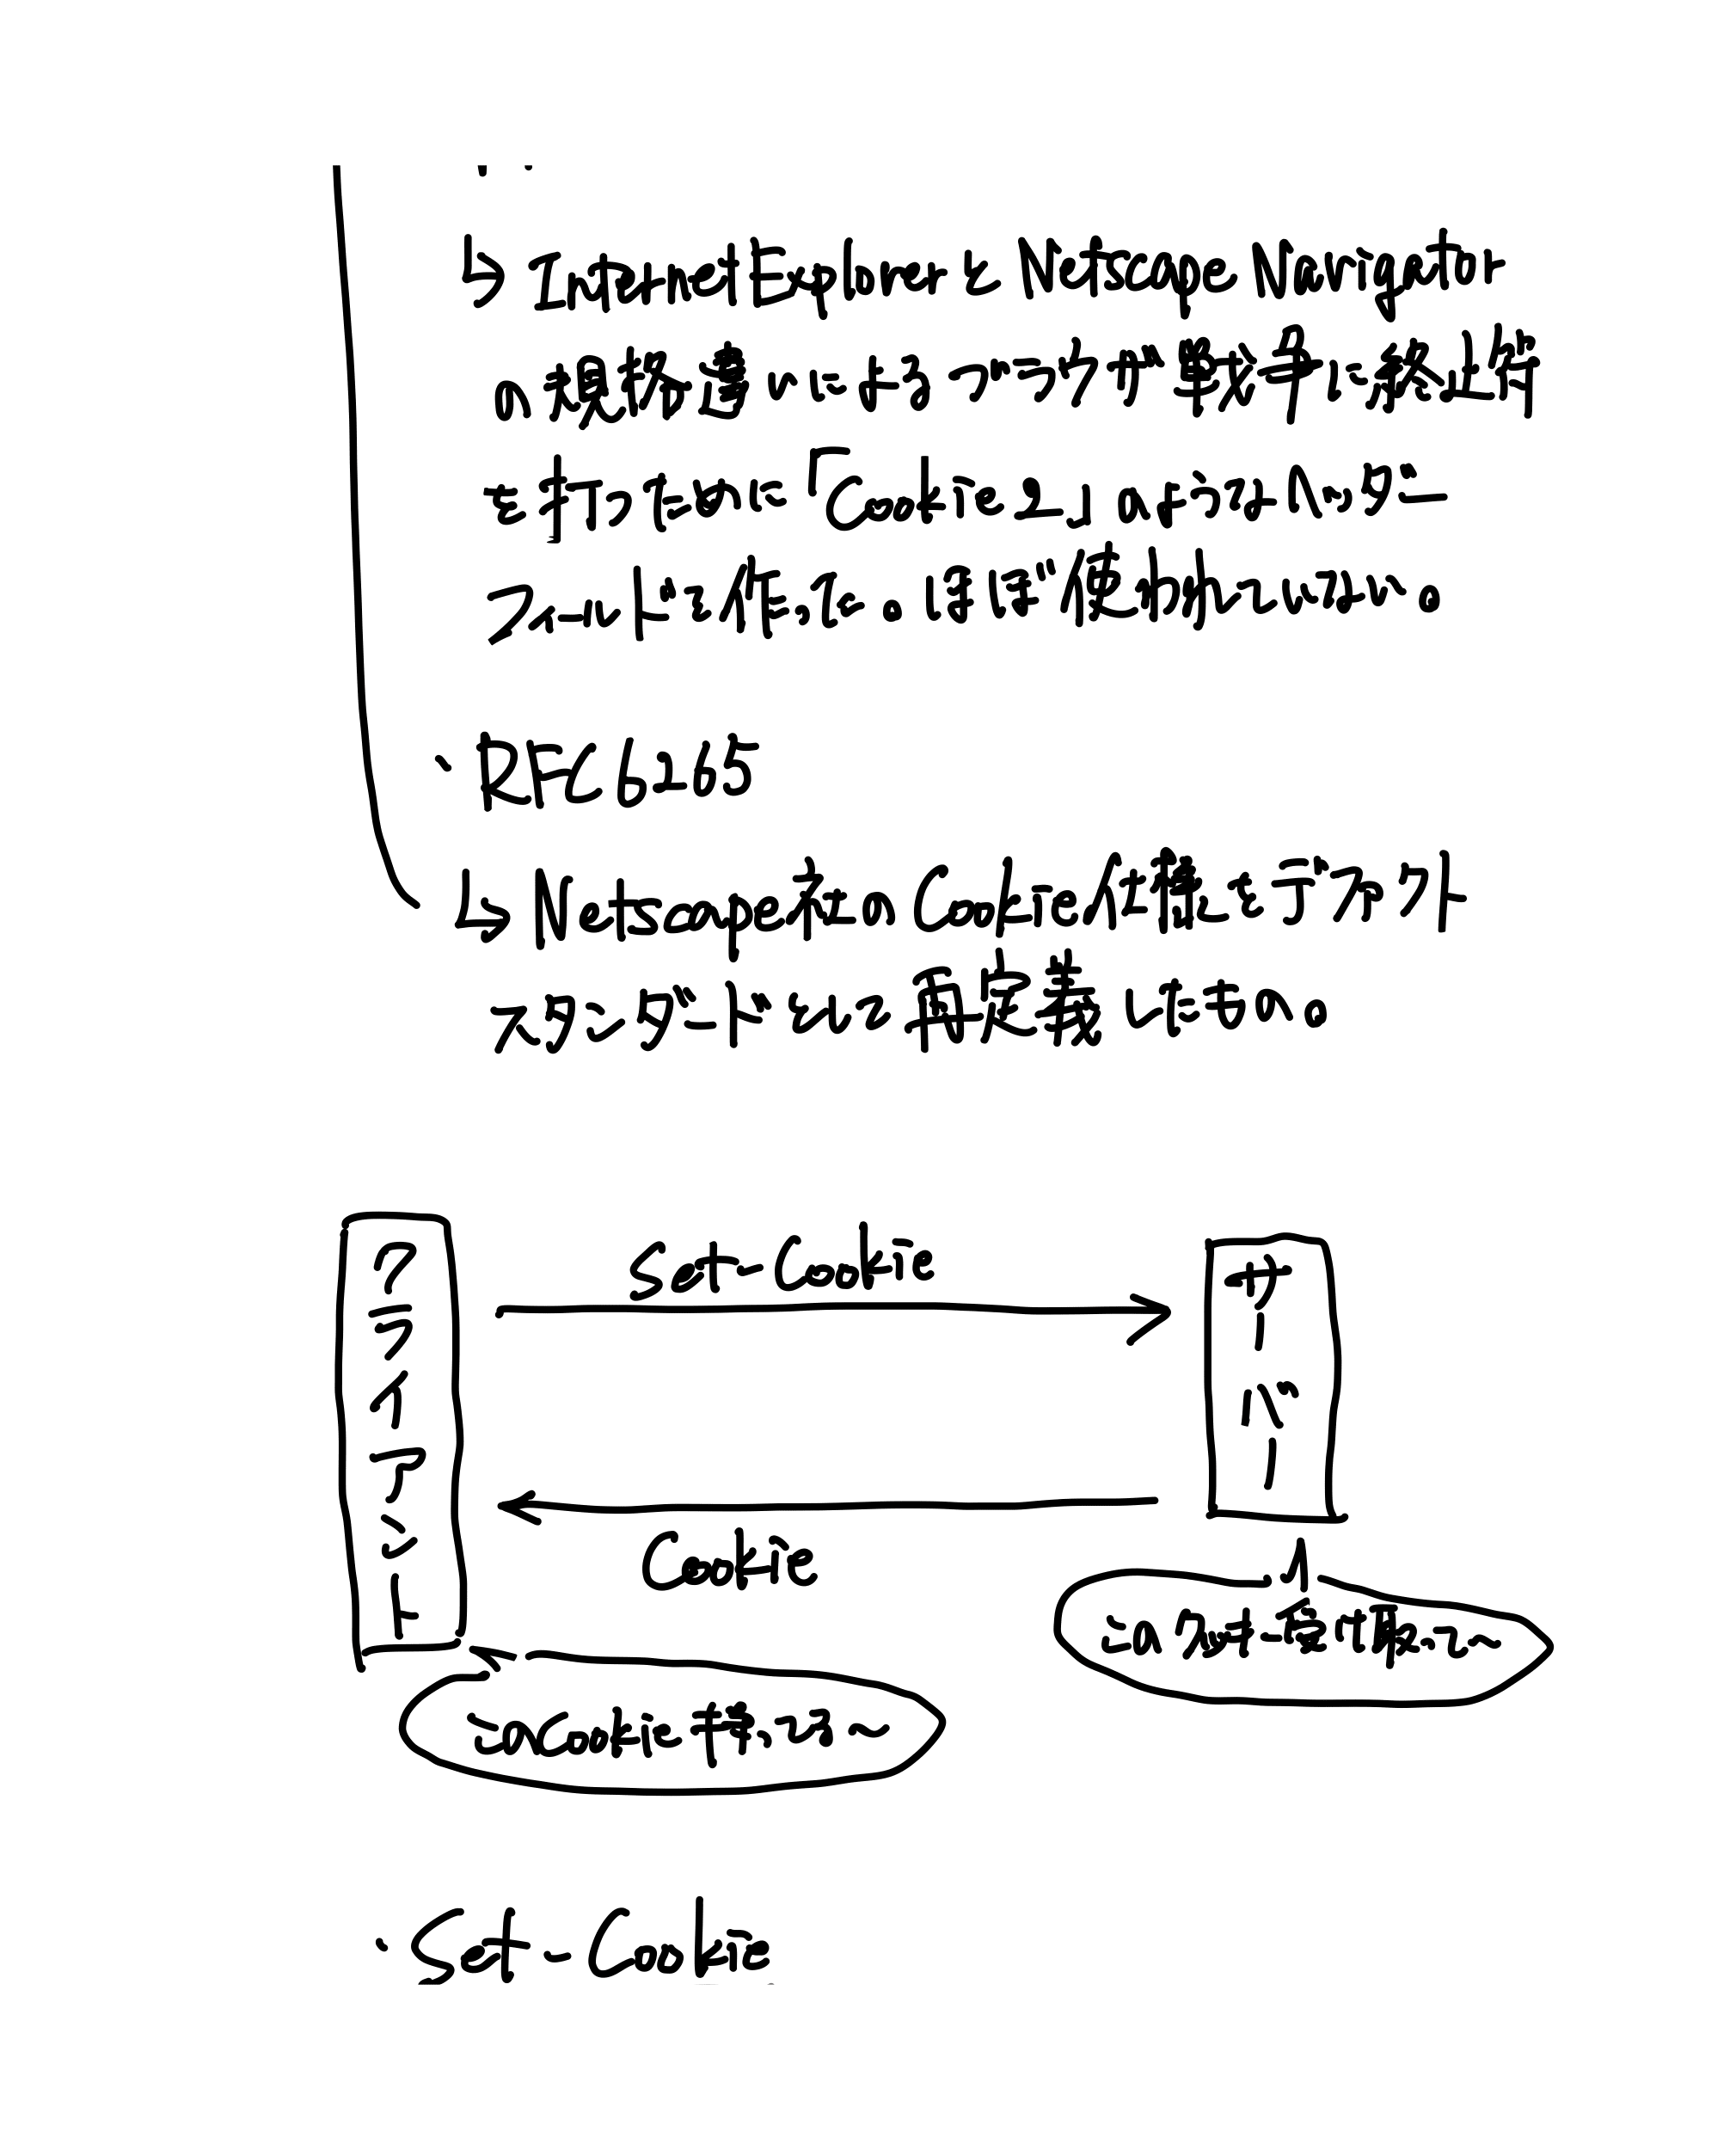 ↳ InternetExplorerとNetscape Navigator
の規格違いによるブラウザ戦争に終止符
を打つために「Cookie2」のようなヘッダー
フィールドを作った。ほぼ使われていない。
・RFC6265
↳ Netscape社のCookie仕様をデファクト
スタンダードとして再定義したもの。
クライアント
Set-Cookie
サーバー
Cookie
この内は受け取って〜
このCookie 持ってる〜
・Set-Cookie